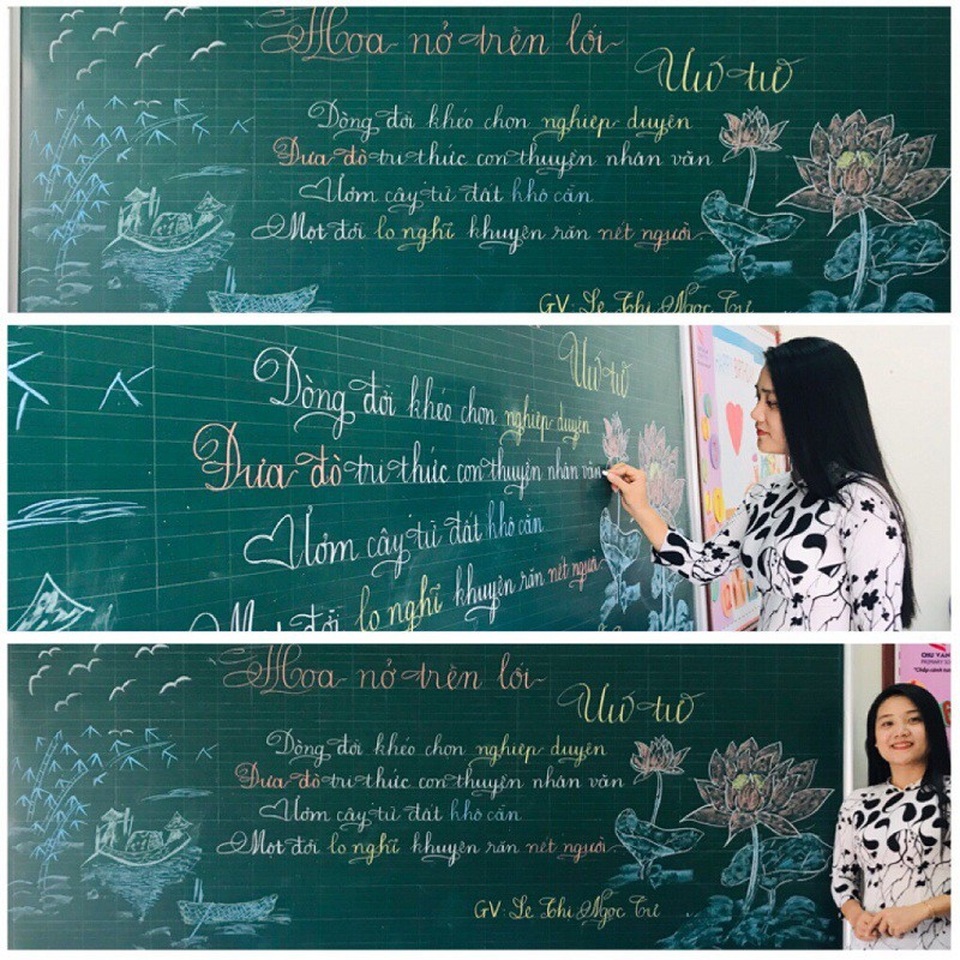 Hoa nở trên lối
Ưú tư
Dòng đời khéo chọn nghiệp duyên
Đưa đò tri thức con thuyền nhân văn
Ươm cây từ đất khô cằn
Một đời lo nghĩ khuyên răn nết người
GV: Lê Thị Ngọc Tư
Ưú tư
Dòng đời khéo chọn nghiệp duyên
Đưa đò tri thức con thuyền nhân văn
Ươm cây từ đất khô cằn
Một đời lo nghĩ khuyên răn nết người
Hoa nở trên lối
Ưú tư
Dòng đời khéo chọn nghiệp duyên
Đưa đò tri thức con thuyền nhân văn
Ươm cây từ đất khô cằn
Một đời lo nghĩ khuyên răn nết người
GV: Lê Thị Ngọc Tư
CHU VAN
PRIMARY